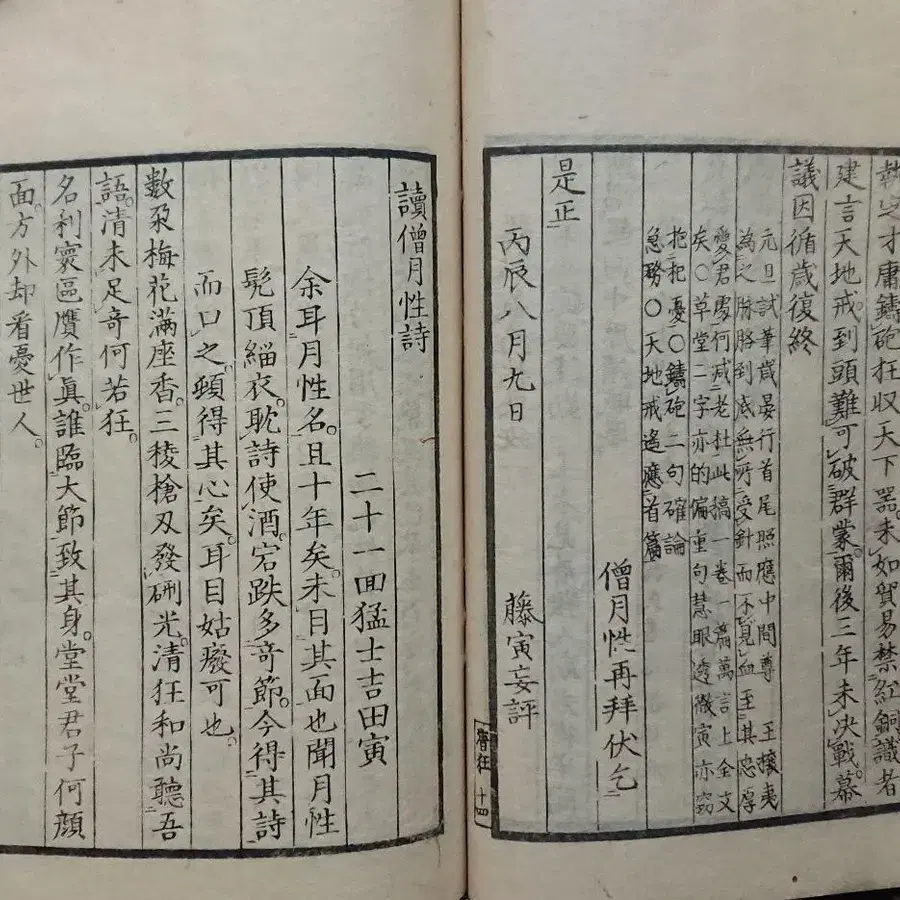 執之才庸鑄砲狂収天下器未如貿易禁紅銅識者
建言天地戒到頭難可破群蒙爾後三年未決戰幕
議因循歳復終
元旦試筆歳晏行首尾照應中間尊王攘夷
為之脉胳到底無所受針而不見血王其忠厚
愛君處何减老杜此搞一卷一篇萬言上全文
矣〇草堂二字亦的偏重句慧眼透微寅亦竊
抱杞憂〇鑄砲二句確論
急務〇天地戒遙應首篇
僧月性再拜伏乞
是正
丙辰八月九日 藤寅妄評
狂 十四
讀僧月性詩
二十一回猛士吉田寅
余耳月性名且十年矣。未目其面也聞月性
髡頂緇衣。耽詩使酒。宕跌多奇節。今得其詩
而口之。頓得其心矣。耳目姑癈可也。
數朶梅花滿座香。三稜槍刄發硎光。清狂和尚聽吾
語。清未足奇何若狂。
名利寰區贋作眞。誰臨大節致其身。堂堂君子何顔
面。方外却看憂世人。